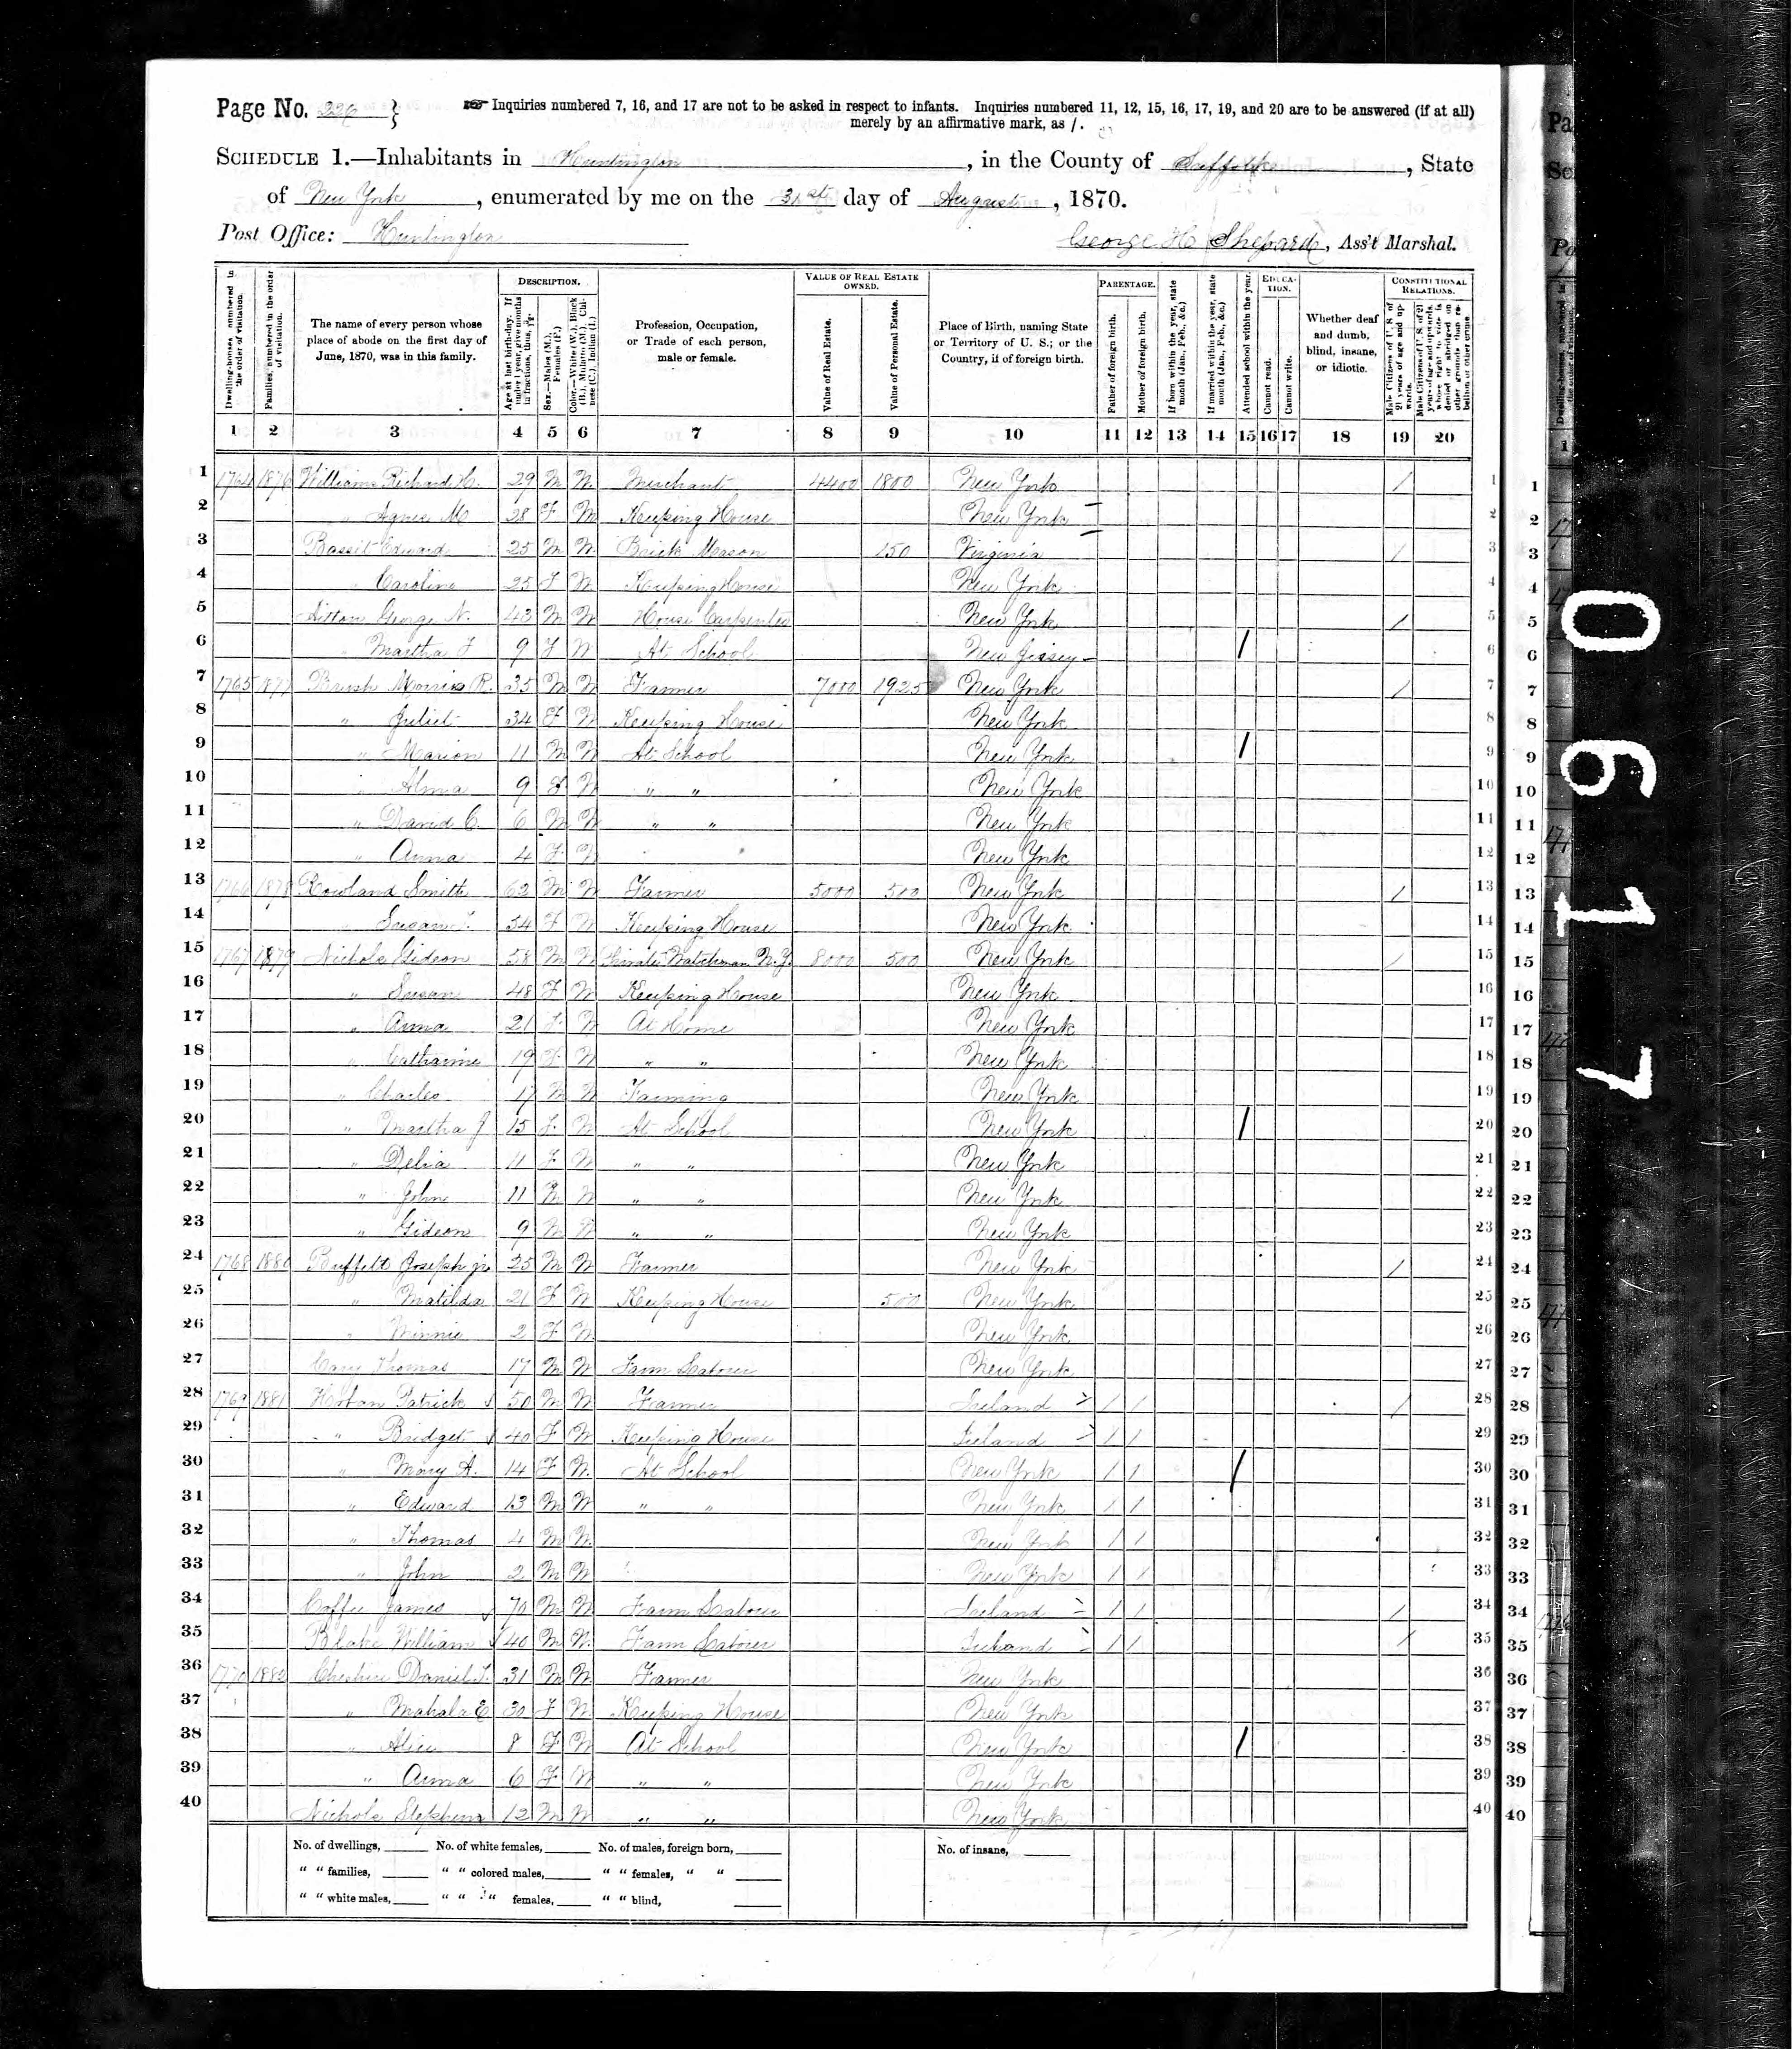 Page No. 226 }
☞ Inquiries numbered 7, 16, and 17 are not to be asked in respect to infants. Inquiries numbered 11, 12, 15, 16, 17, 19, and 20 are to be answered (if at all)
merely by an affirmative mark, as /.
SCHEDULE 1.—Inhabitants in Huntington, in the County of Suffolk, State
of New York, enumerated by me on the 31st day of August, 1870.
Post Office: Huntington
George H Shepard, Ass't Marshal.
Dwelling-houses, numbered in the order of visitation.
Families, numbered in the order of visitation.
The name of every person whose place of abode on the first day of June, 1870, was in this family.
DESCRIPTION.
Age at last birth-day. If under 1 year, give months in fractions, thus,
Sex.—Males (M.), Females (F.)
Color.—White (W.), Black (B.), Mulatto (M.), Chinese (C.), Indian (I.)
Profession, Occupation, or Trade of each person, male or female.
VALUE OF REAL ESTATE OWNED.
Value of Real Estate.
Value of Personal Estate.
Place of Birth, naming State or Territory of U. S.; or the Country, if of foreign birth.
PARENTAGE.
Father of foreign birth.
Mother of foreign birth.
If born within the year, state month (Jan., Feb., &c.)
If married within the year, state month (Jan., Feb., &c.)
Attended school within the year.
EDUCATION.
Cannot read.
Cannot write.
Whether deaf and dumb, blind, insane, or idiotic.
CONSTITUTIONAL RELATIONS.
Male Citizens of U. S. of 21 years of age and upwards.
Male Citizens of U. S. of 21 years of age and upwards whose right to vote is denied or abridged on other grounds than rebellion or other crime
1 2 3 4 5 6 7 8 9 10 11 12 13 14 15 16 17 18 19 20
1 1764 1876 Williams Richard H. 29 M W Merchant 4400 1800 New York / 1
2 " Agnes M 28 F W Keeping House New York 2
3 Bassit Edward 25 M W Brick Mason 150 Virginia / 3
4 " Caroline 25 F W Keeping House New York 4
5 George N. 43 M W House Carpenter New York / 5
6 " Martha F 9 F W At School New Jersey / 6
7 1765 1877 Brush Morris R. 35 M W Farmer 7000 1925 New York / 7
8 " Juliet 34 F W Keeping House New York 8
9 " Marion 11 M W At School New York / 9
10 " Alma 9 F W " " New York 10
11 " David C. 6 M W " " New York 11
12 " Anna 4 F W New York 12
13 1766 1878 Rowland Smith 62 M W Farmer 5000 500 New York / 13
14 " Susan 54 F W Keeping House New York 14
15 1767 1879 Nichols Gideon 58 M W Private Watchman N.Y. 8000 500 New York / 15
16 " Susan 48 F W Keeping House New York 16
17 " Anna 21 F W At Home New York 17
18 " Catharine 19 F W " " New York 18
19 " Charles 17 M W Farming New York 19
20 " Martha J 15 F W At School New York / 20
21 " Delia 11 F W " " New York 21
22 " John 11 M W " " New York 22
23 " Gideon 9 M W " " New York 23
24 1768 1880 Buffett Joseph jr 25 M W Farmer New York / 24
25 " Matilda 21 F W Keeping House 500 New York 25
26 " Minnie 2 F W New York 26
27 Thomas 17 M W Farm Laborer New York 27
28 1769 1881 Patrick 50 M W Farmer Ireland / / / 28
29 " Bridget 40 F W Keeping House Ireland / / 29
30 " Mary A. 14 F W At School New York / / / 30
31 " Edward 13 M W " " New York / / 31
32 " Thomas 4 M W New York / / 32
33 " John 2 M W New York / / 33
34 James 70 M W Farm Laborer Ireland / / / 34
35 Blake William 40 M W Farm Laborer Ireland / / / 35
36 1770 1882 Cheshire Daniel 31 M W Farmer New York 36
37 " Mahala E 30 F W Keeping House New York 37
38 " Alice 8 F W At School New York / 38
39 " Anna 6 F W " " New York 39
40 Nichols Stephen 12 M W " " New York 40
No. of dwellings, No. of white females, No. of males, foreign born, No. of insane,
" " families, " " colored males, " " females, " "
" " white males, " " " females, " " blind,
0617